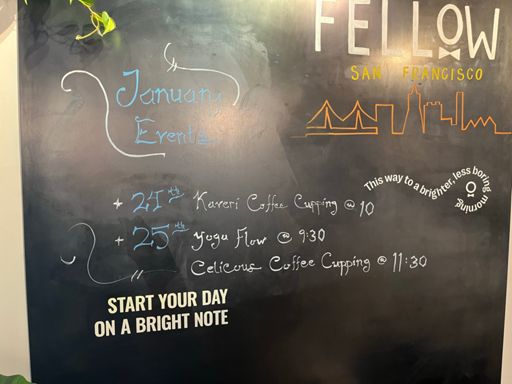 FELLOW
SAN FRANCISCO
January
Events
This way to a brighter, less boring morning.
+ 24th Kaveri Coffee Cupping @ 10
+ 25th Yoga Flow @ 9:30
Celicous Coffee Cupping @ 11:30
START YOUR DAY
ON A BRIGHT NOTE